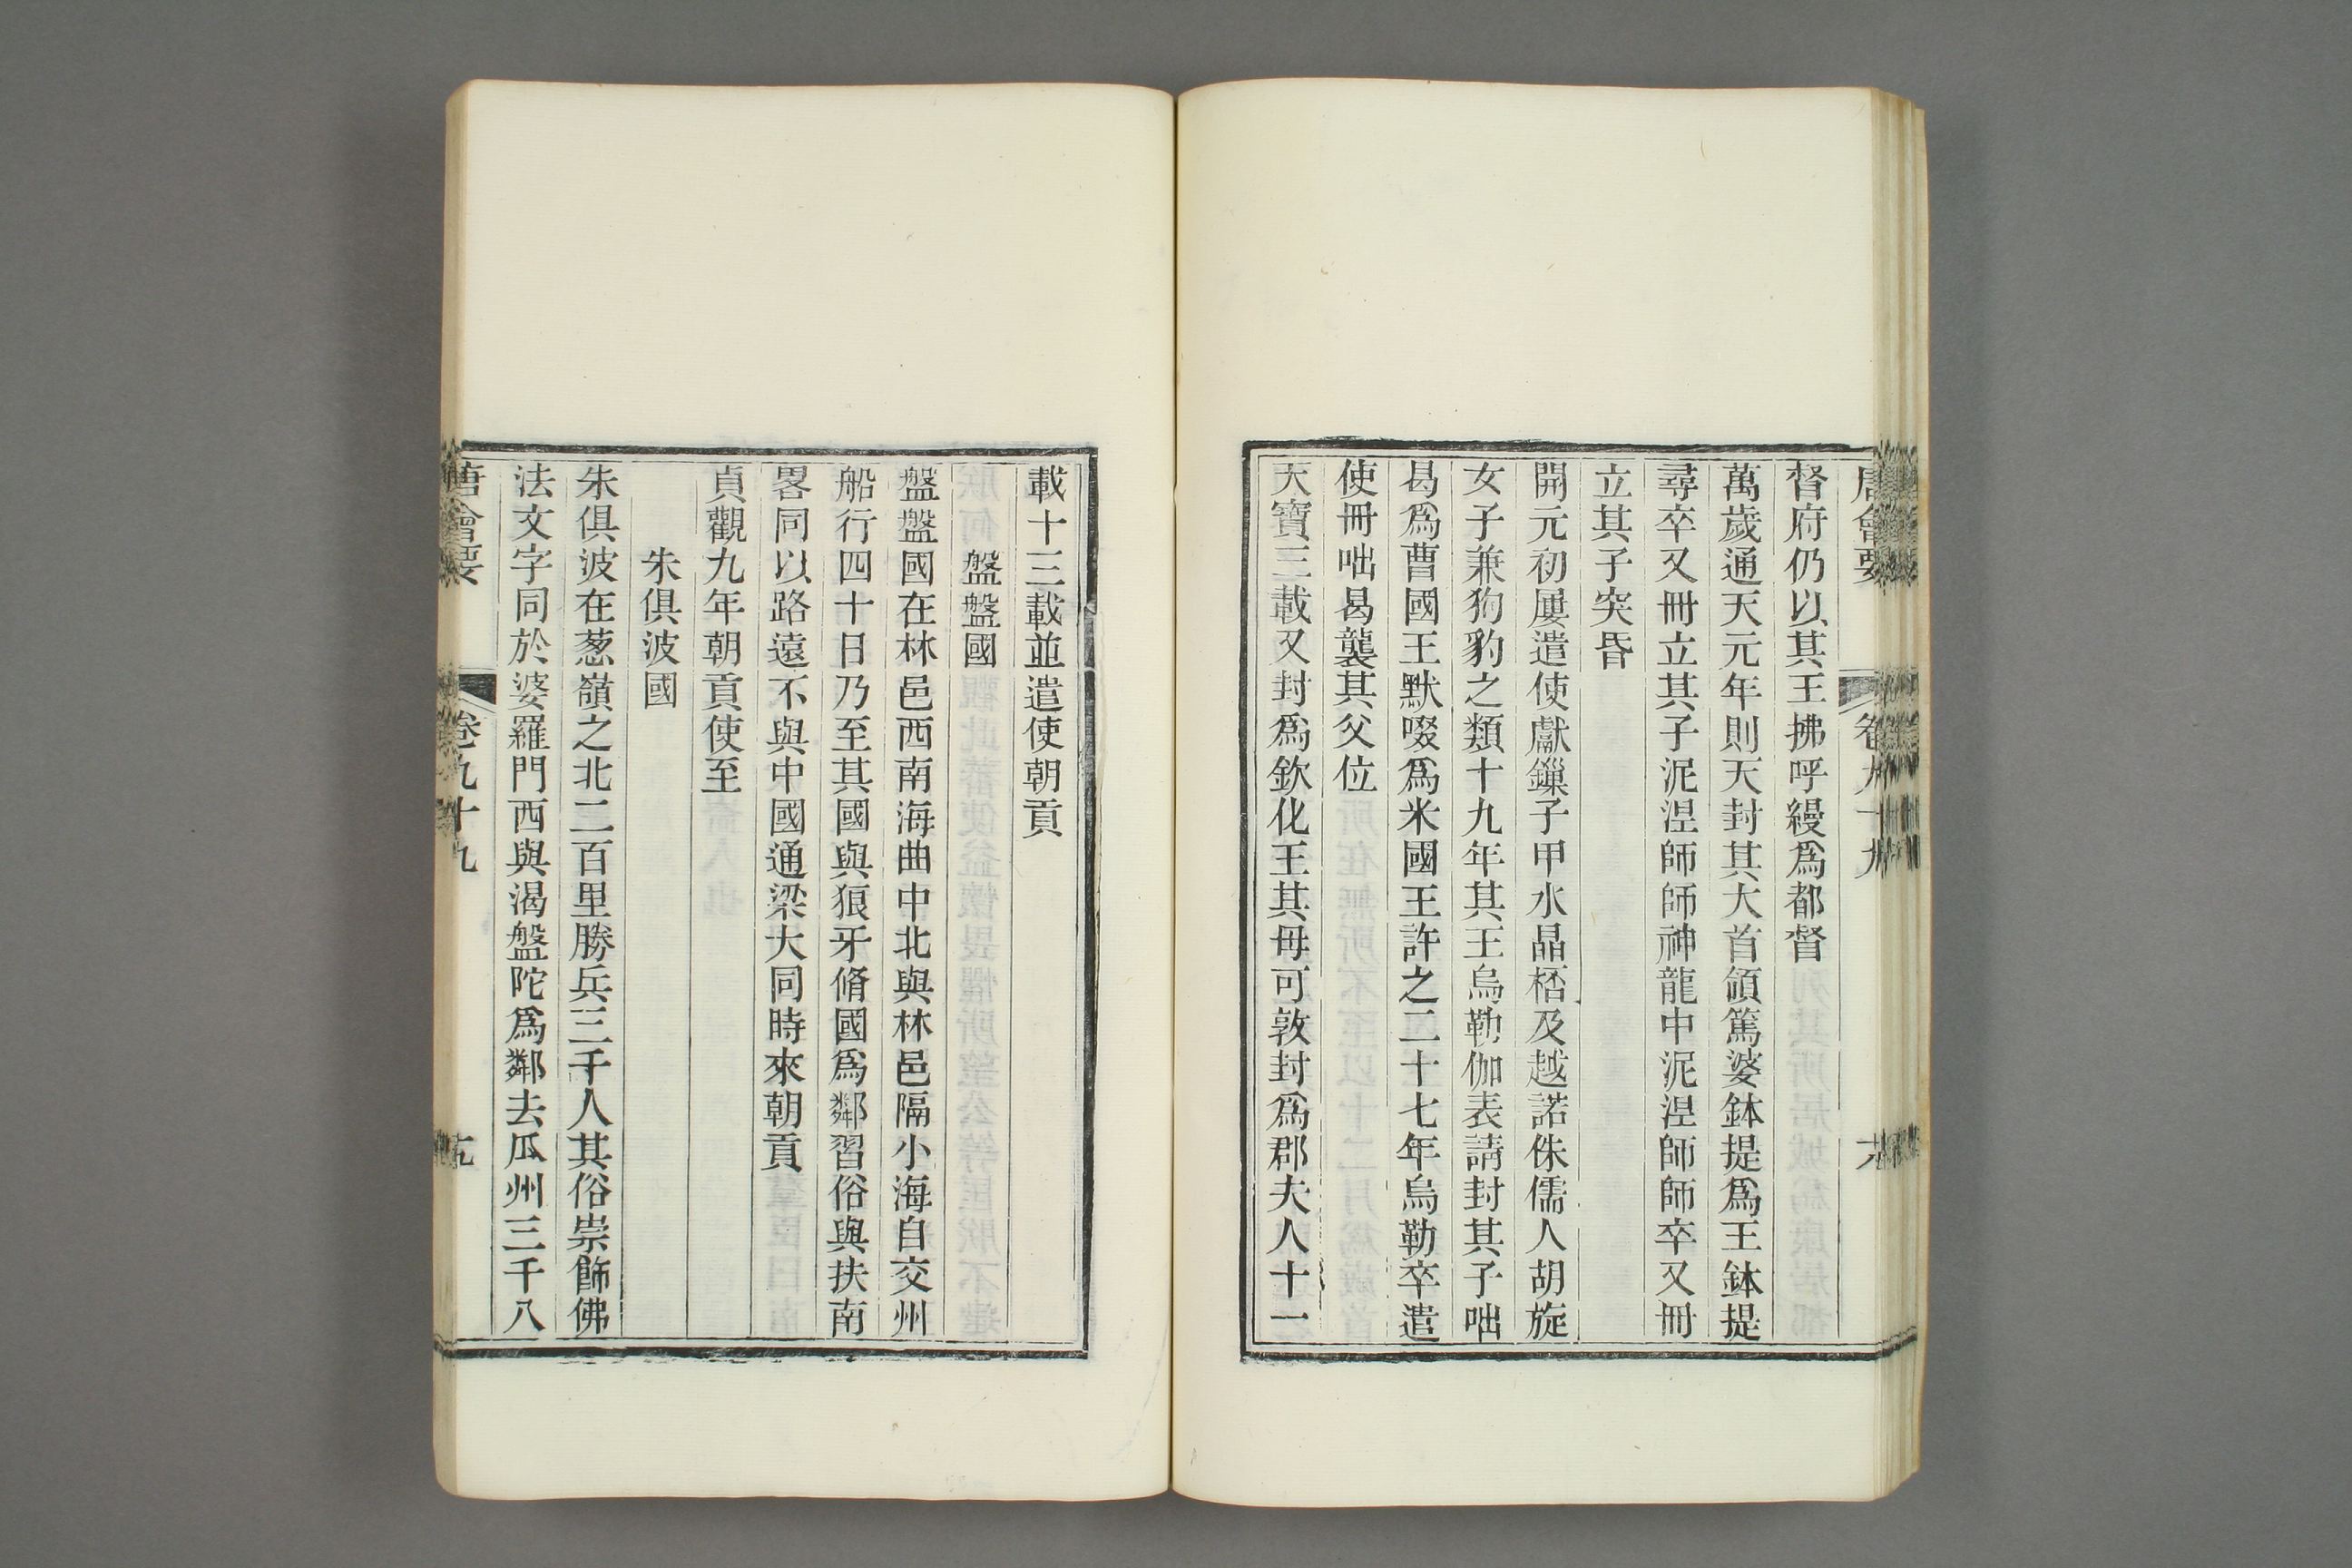 唐會要 卷九十九
督府仍以其王拂呼縵爲都督
萬歲通天元年則天封其大首領篤婆鉢提爲王鉢提
尋卒又冊立其子泥涅師師神龍中泥涅師師卒又冊
立其子突昏
開元初屢遣使獻鏁子甲水晶桮及越諾侏儒人胡旋
女子兼狗豹之類十九年其王烏勒伽表請封其子咄
曷爲曹國王默啜爲米國王許之二十七年烏勒卒遣
使冊咄曷襲其父位
天寶三載又封爲欽化王其母可敦封爲郡夫人十一
載十三載並遣使朝貢
盤盤國
盤盤國在林邑西南海曲中北與林邑隔小海自交州
船行四十日乃至其國與狼牙脩國爲鄰習俗與扶南
畧同以路遠不與中國通梁大同時來朝貢
貞觀九年朝貢使至
朱俱波國
朱俱波在葱嶺之北二百里勝兵三千人其俗崇飾佛
法文字同於婆羅門西與渴盤陀爲鄰去瓜州三千八
唐會要 卷九十九